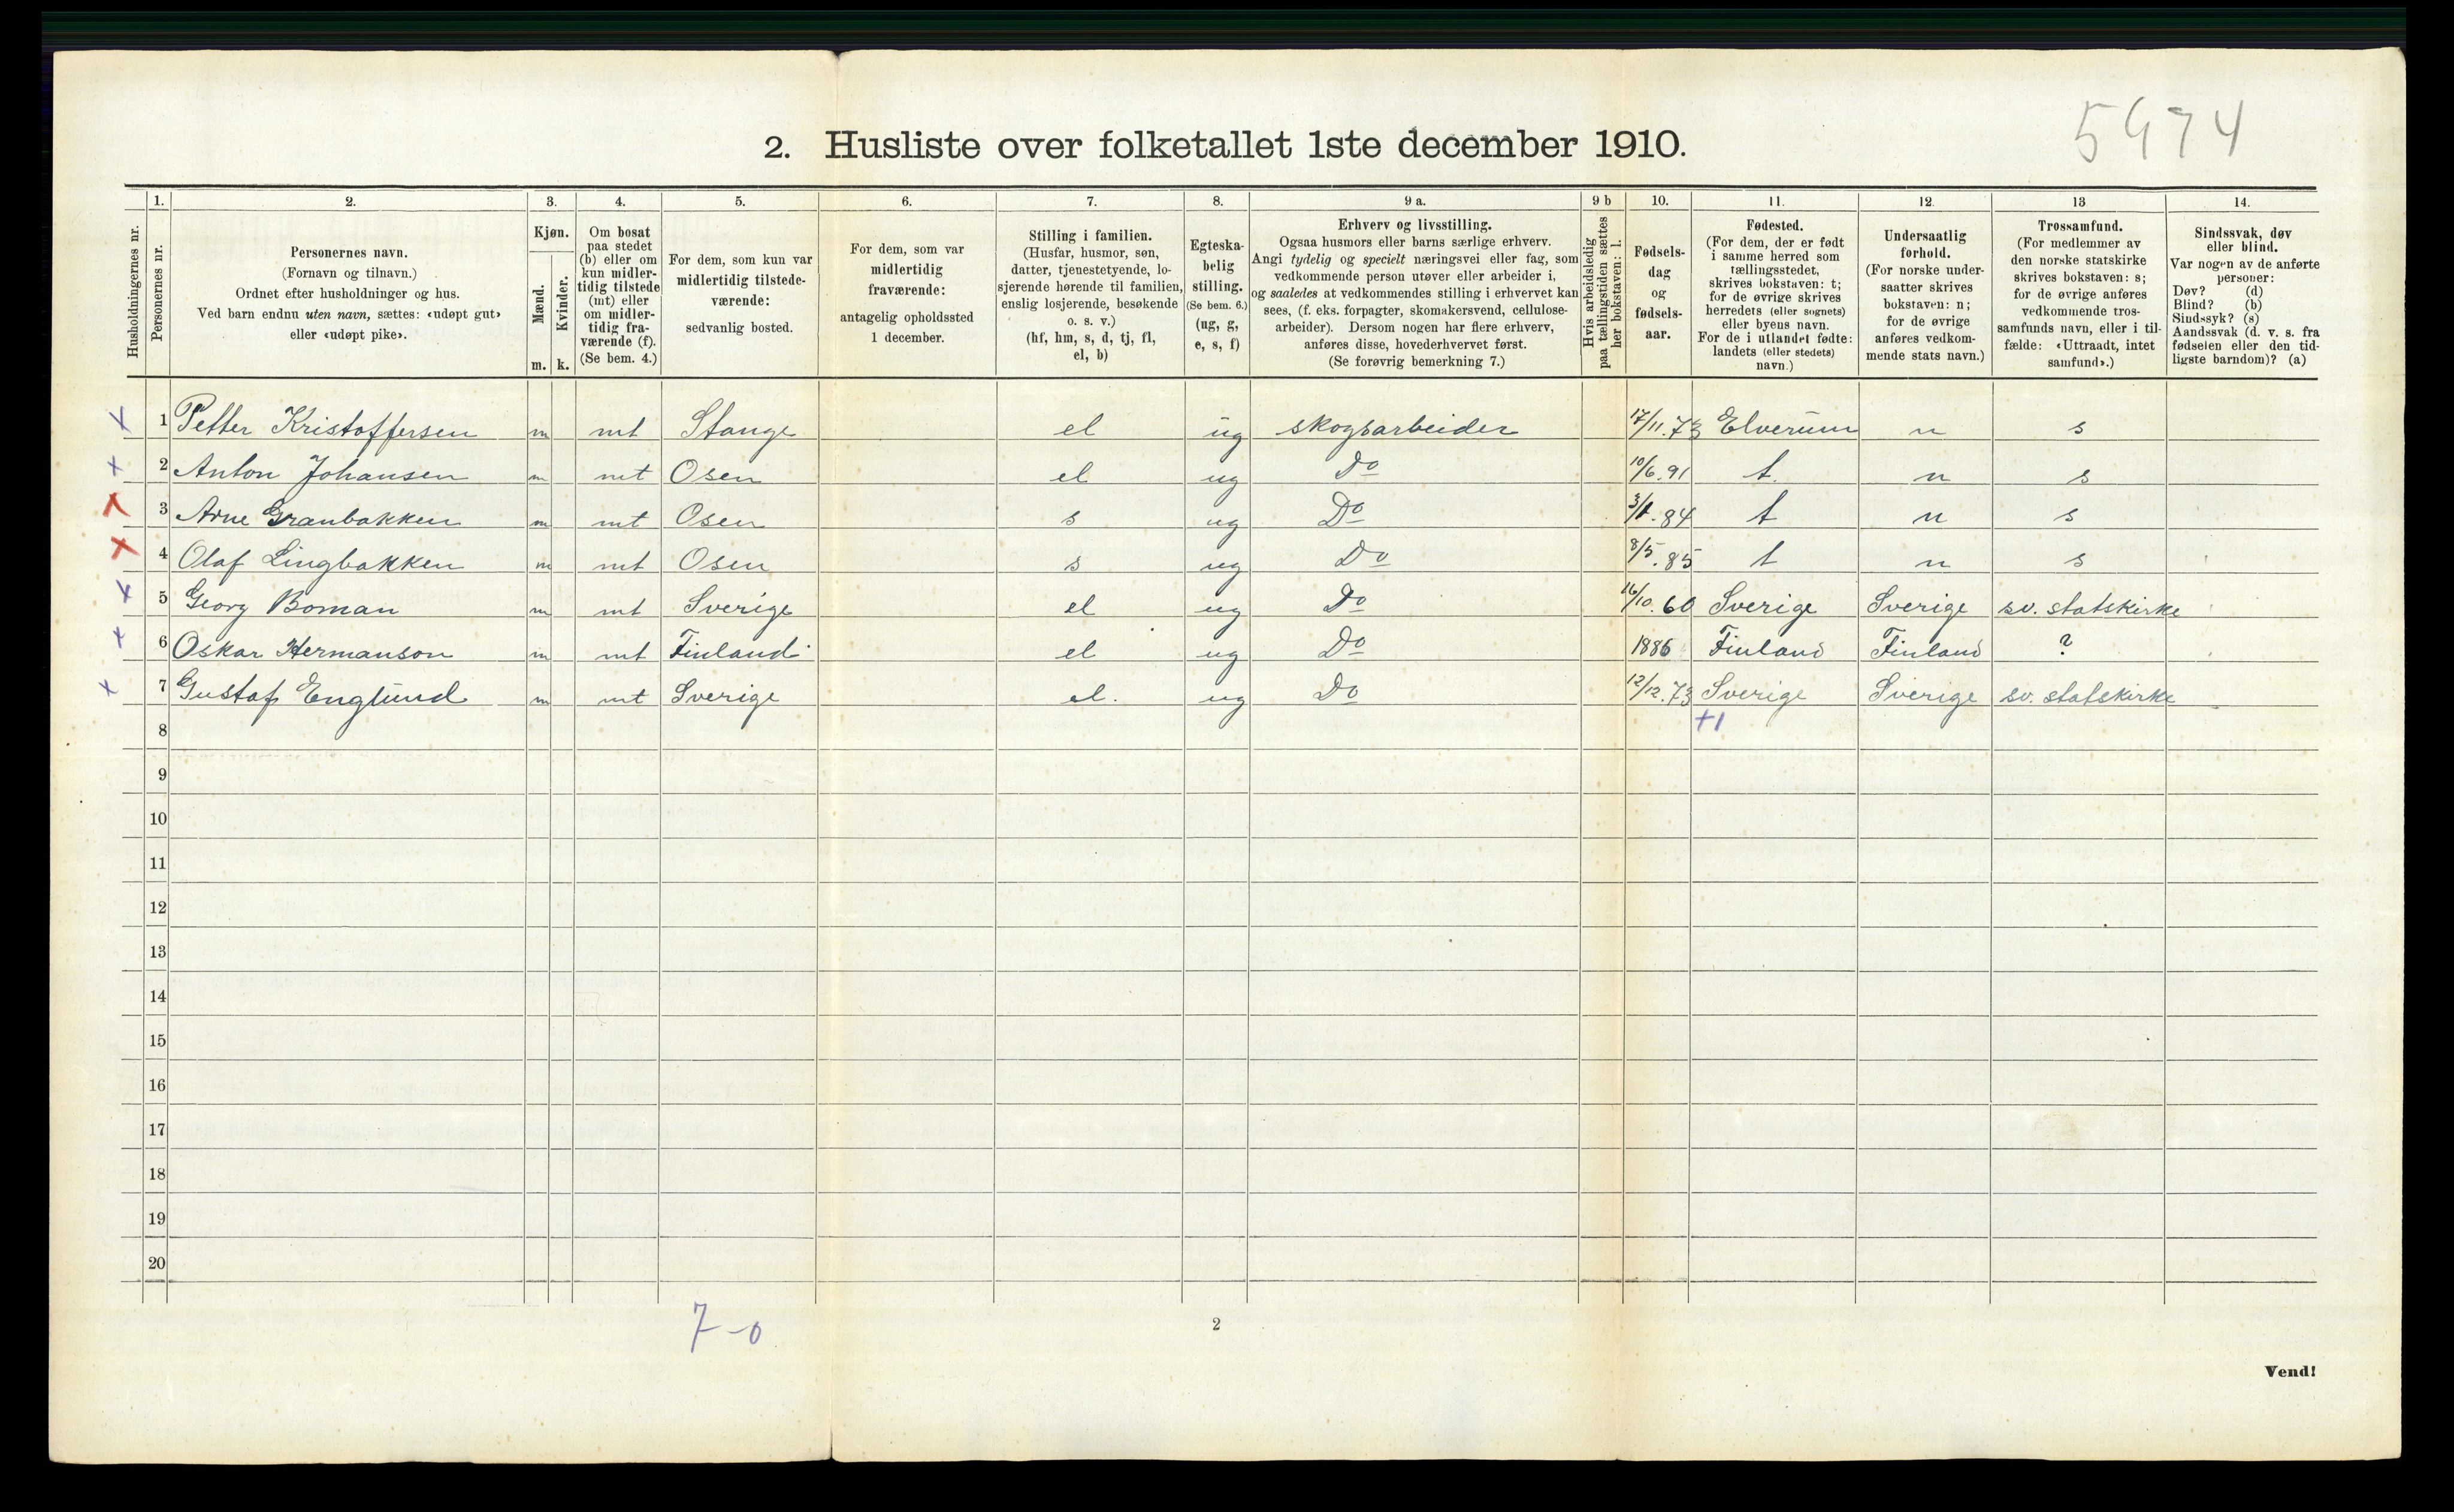 5974
2. Husliste over folketallet 1ste december 1910.
Husholdningernes nr.
1. Personernes nr.
2. Personernes navn. (Fornavn og tilnavn.) Ordnet efter husholdninger og hus. Ved barn endnu uten navn, sættes: «udøpt gut» eller «udøpt pike».
3. Kjøn. Mænd. m. Kvinder. k.
4. Om bosat paa stedet (b) eller om kun midlertidig tilstede (mt) eller om midlertidig fraværende (f). (Se bem. 4.)
5. For dem, som kun var midlertidig tilstedeværende: sedvanlig bosted.
6. For dem, som var midlertidig fraværende: antagelig opholdssted 1 december.
7. Stilling i familien. (Husfar, husmor, søn, datter, tjenestetyende, losjerende hørende til familien, enslig losjerende, besøkende o. s. v.) (hf, hm, s, d, tj, fl, el, b)
8. Egteskabelig stilling. (Se bem. 6.) (ug, g, e, s, f)
9 a. Erhverv og livsstilling. Ogsaa husmors eller barns særlige erhverv. Angi tydelig og specielt næringsvei eller fag, som vedkommende person utøver eller arbeider i, og saaledes at vedkommendes stilling i erhvervet kan sees, (f. eks. forpagter, skomakersvend, cellulosearbeider). Dersom nogen har flere erhverv, anføres disse, hovederhvervet først. (Se forøvrig bemerkning 7.)
9 b Hvis arbeidsledig paa tællingstiden sættes her bokstaven: l.
10. Fødselsdag og fødselsaar.
11. Fødested. (For dem, der er født i samme herred som tællingsstedet, skrives bokstaven: t; for de øvrige skrives herredets (eller sognets) eller byens navn. For de i utlandet fødte: landets (eller stedets) navn.)
12. Undersaatlig forhold. (For norske undersaatter skrives bokstaven: n; for de øvrige anføres vedkommende stats navn.)
13 Trossamfund. (For medlemmer av den norske statskirke skrives bokstaven: s; for de øvrige anføres vedkommende trossamfunds navn, eller i tilfælde: «Uttraadt, intet samfund».)
14. Sindssvak, døv eller blind. Var nogen av de anførte personer: Døv? (d) Blind? (b) Sindssyk? (s) Aandssvak (d. v. s. fra fødselen eller den tidligste barndom)? (a)
x 1 Petter Kristoffersen m mt Stange el ug skogsarbeider 17/11.73 Elverum n s
x 2 Anton Johansen m mt Osen el ug Do 10/6.91 t. n s
3 Arne Granbakken m mt Osen s ug Do 3/1.84 t n s
x 4 Olaf Lingbakken m mt Osen s ug Do 8/5.85 t n s
x 5 Georg Boman m mt Sverige el ug Do 16/10.60 Sverige Sverige sv. statskirke
x 6 Oskar Hermanson m mt Finland el ug Do 1886 Finland Finland ?
x 7 Gustaf Englund m mt Sverige el. ug Do 12/12.73 Sverige Sverige sv. statskirke
8 +1
9
10
11
12
13
14
15
16
17
18
19
20
7-0
2
Vend!